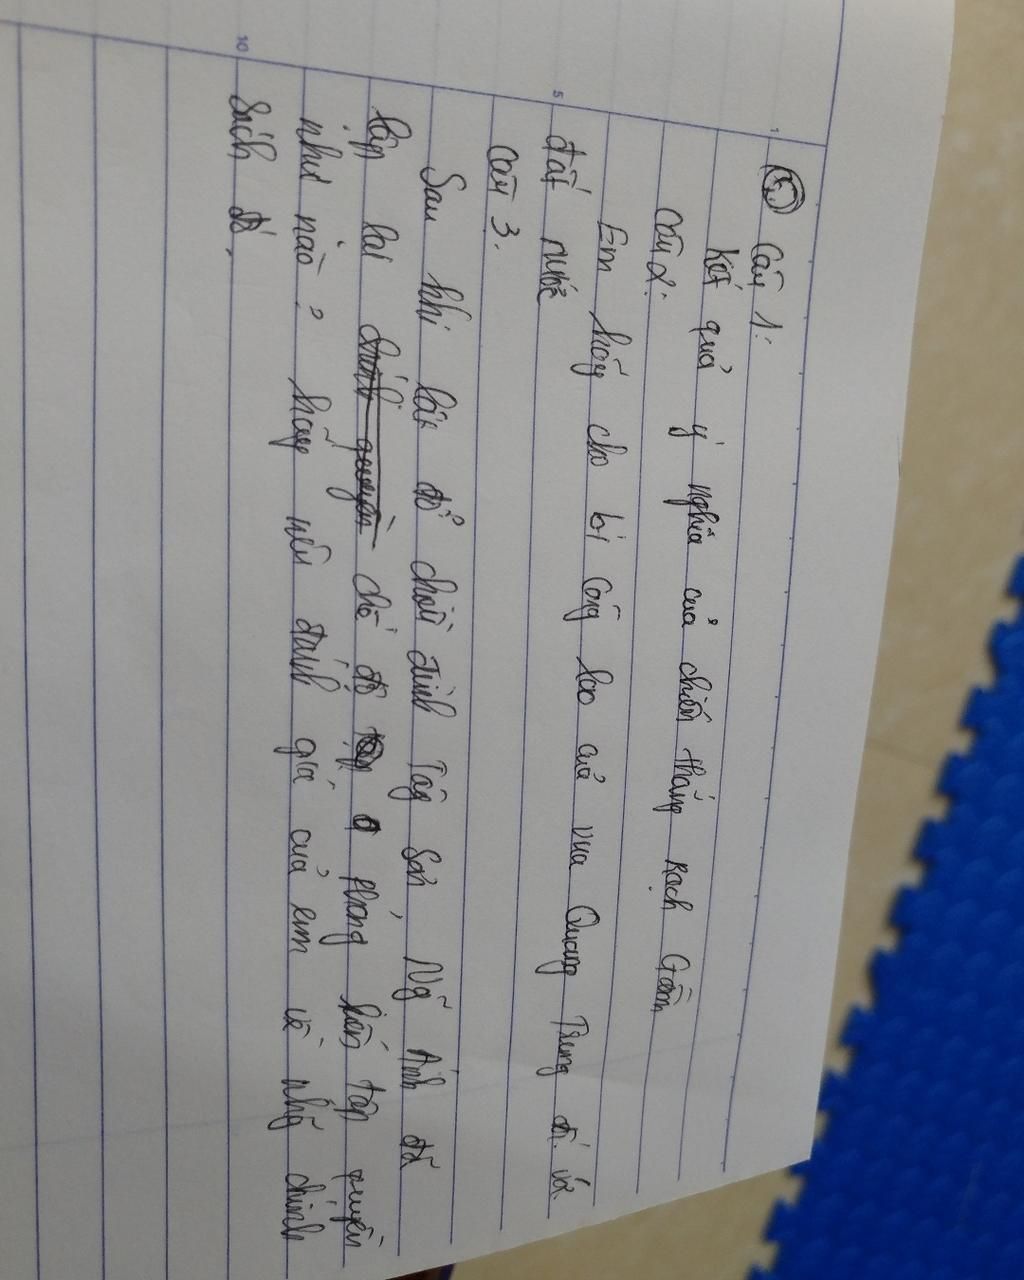 Câu 1:
Kết quả ý nghĩa của chiến thắng Rạch Gầm
Câu 2:
Em hãy cho bt công lao của vua Quang Trung đ. với
đất nước
Câu 3.
Sau khi lật đổ chiều đình Tây Sơn, Ng Ánh đã
lập lại chế độ phong kiến tập quyền
như nào? hãy nêu đánh giá của em về nhg chính
sách đó.
1
5
10